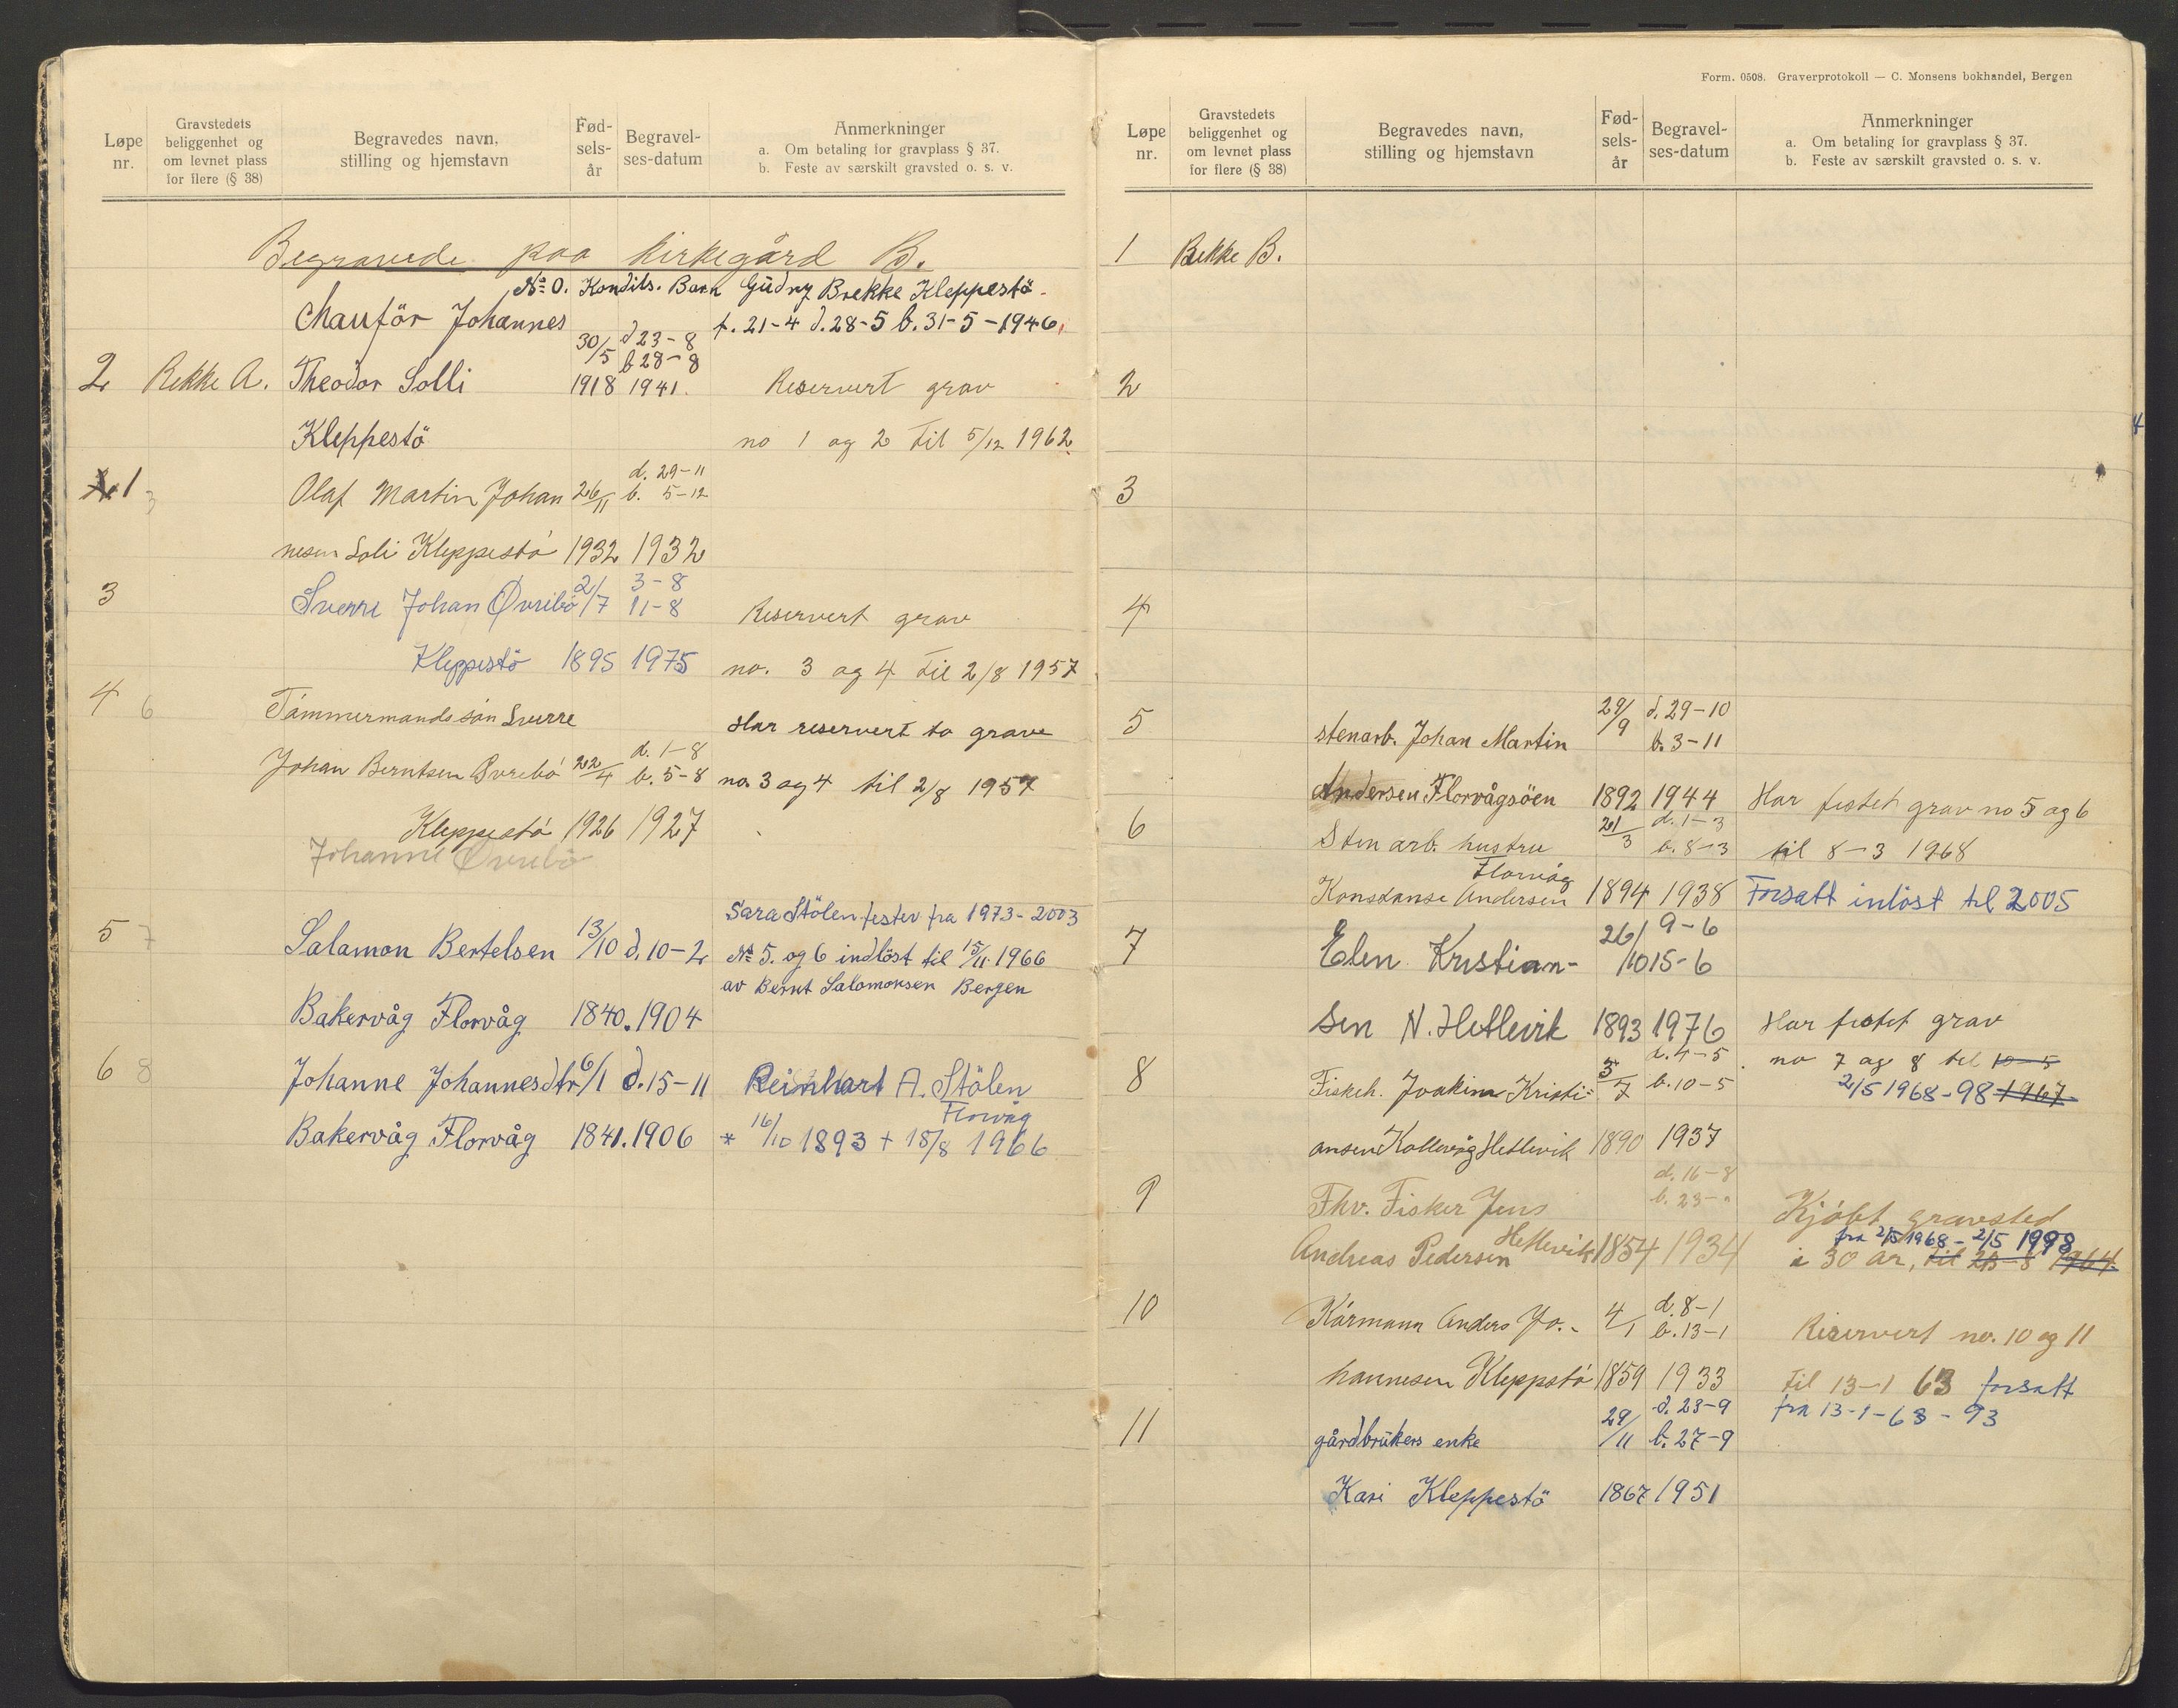 Løpe nr.
Gravstedets beliggenhet og om levnet plass for flere (§ 38)
Begravedes navn, stilling og hjemstavn
Fød-sels-år
Begravel-ses-datum
Anmerkninger
a. Om betaling for gravplass § 37.
b. Feste av særskilt gravsted o. s. v.
Begravede paa kirkegård B.
№ 0. Kondits. Barn Gudny Brekke Kleppestö
Chauför Johannes f. 21-4 d. 28-5 b. 31-5-1946.
30/5 d 23-8
b 28-8
2 Rekke A. Theodor Solli 1918 1941. Reservert grav
Kleppestö no 1 og 2 til 5/12 1962
d. 29-11
1 3 Olaf Martin Johan 26/11 b. 5-12
nesen Soli Kleppestö 1932 1932
3 Sverre Johan Øvrebö 2/7 3-8
11-8 Reservert grav
Kleppestö 1895 1975 no. 3 og 4 til 2/8 1957
4 6 Tömmermands sön Sverre Har reservert to grave
Johan Berntsen Øvrebö 22/4 d. 1-8
b. 5-8 no. 3 og 4 til 2/8 1957
Kleppestö 1926 1927
Johanne Øvrebö
Sara Stölen fester fra 1973-2003
5 7 Salamon Bertelsen 13/10 d. 10-2 № 5. og 6 indlöst til 15/11. 1966
av Bernt Salomonsen Bergen
Bakervåg Florvåg 1840. 1904
6 8 Johanne Johannesdtr 6/1 d. 15-11 Reinhart A. Stölen
Florvåg
Bakervåg Florvåg 1841. 1906 * 16/10 1893 + 18/8 1966
Form. 0508. Graverprotokoll — C. Monsens bokhandel, Bergen
Løpe nr.
Gravstedets beliggenhet og om levnet plass for flere (§ 38)
Begravedes navn, stilling og hjemstavn
Fød-sels-år
Begravel-ses-datum
Anmerkninger
a. Om betaling for gravplass § 37.
b. Feste av særskilt gravsted o. s. v.
1 Rekke B.
2
3
4
5 stenarb. Johan Martin 29/9 d. 29-10
b. 3-11
Andersen Florvågsöen 1892 1944 Har festet grav no 5 og 6
6 Sten arb. hustru 21/3 d. 1-3
b. 8-3 til 8-3 1968
Florvåg
Konstanse Andersen 1894 1938 Forsatt inlöst til 2005
7 Elen Kristian- 26/10 9-6
15-6
sen N. Hetlevik 1893 1976 Har festet grav
8 Fiskeh. Joakim Kristi- 5/7 d. 4-5
b. 10-5 no 7 og 8 til 10-5
2/5 1968-98 1967
ansen Kollevåg Hetlevik 1890 1937
9 Fhv. Fisker Jens d. 16-8
b. 23-" Kjöbt gravsted
Andreas Pedersen Hetlevik 1854 1934 fra 2/5 1968 - 2/5 1998
i 30 år, til 23-8 1964
10 Kårmann Anders Jo.- 4/1 d. 8-1
b. 13-1 Reservert no. 10 og 11
hannesen Kleppstö 1859 1933 til 13-1 63 forsatt
fra 13-1-63-93
11 gårdbrukers enke 29/11 d. 23-9
b. 27-9
Kari Kleppestö 1867 1951